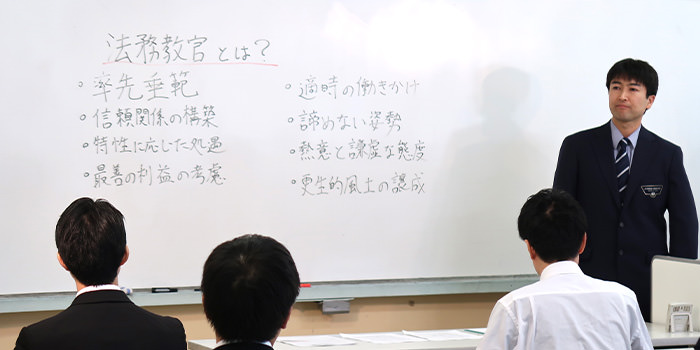 法務教官とは?
・率先垂範
・信頼関係の構築
・特性に応じた処遇
・最善の利益の考慮
・適時の働きかけ
・諦めない姿勢
・熱意と謙虚な態度
・更生的風土の醸成